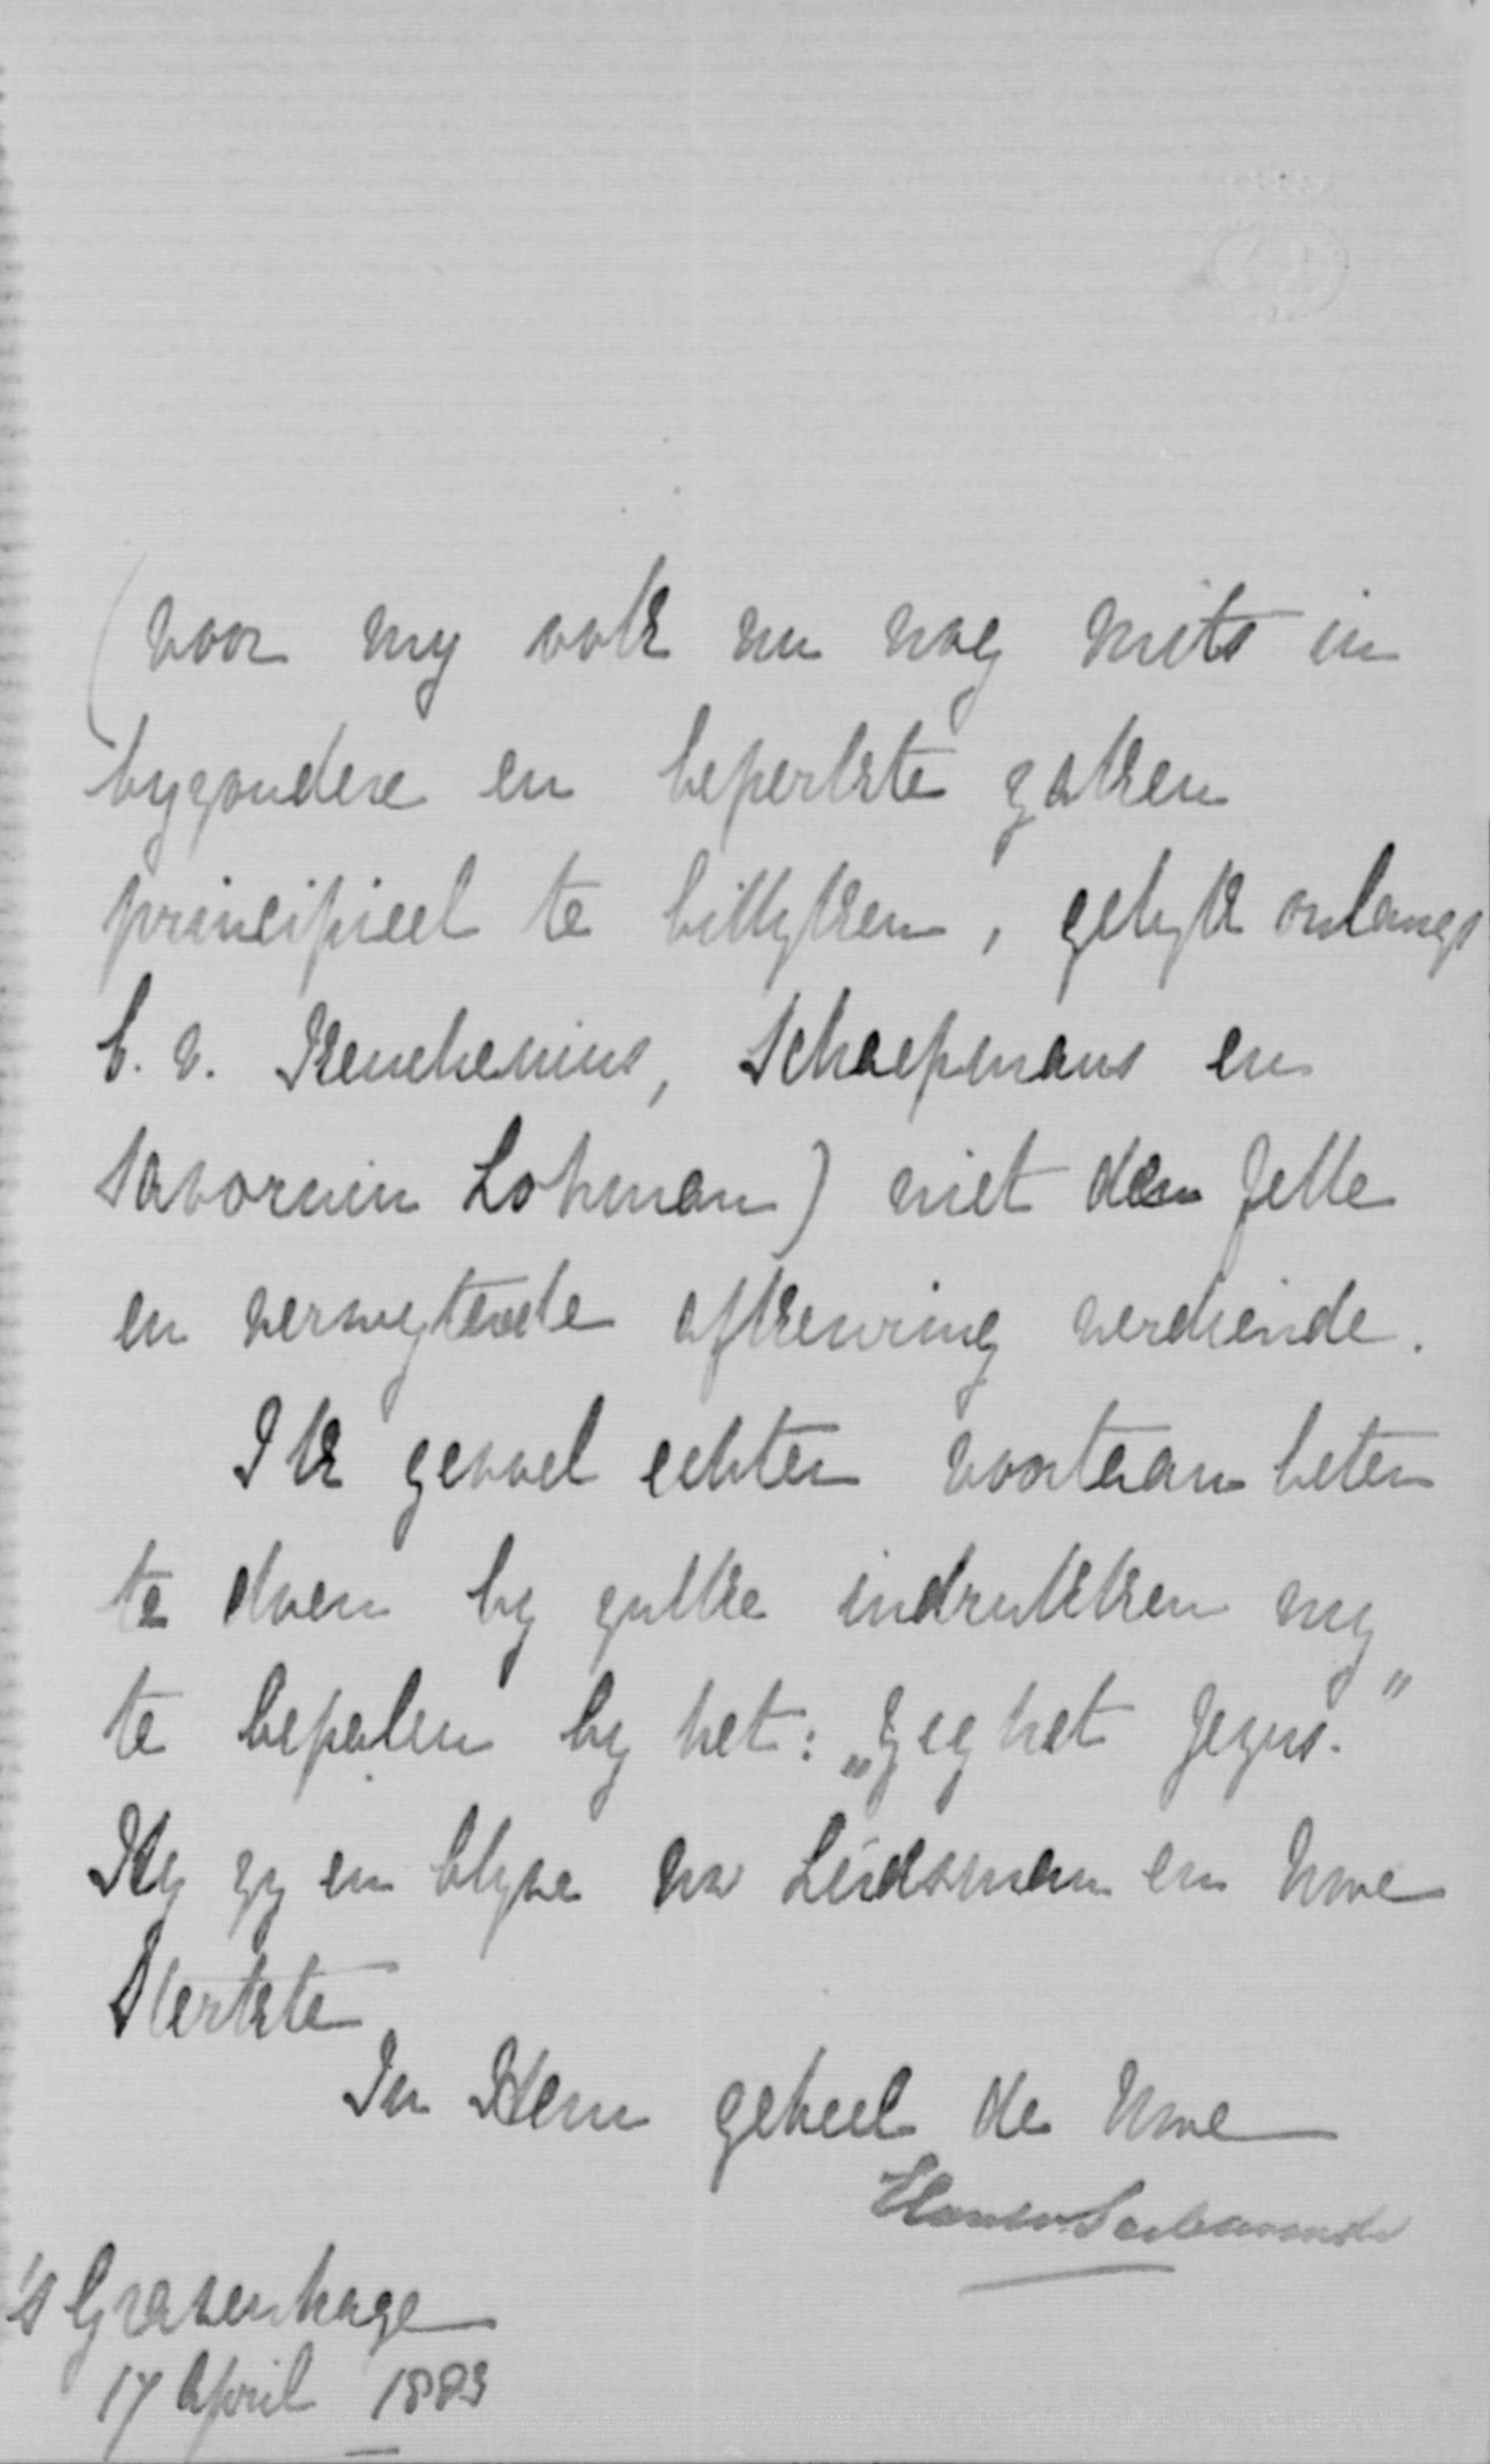 (voor my ook nu nog mits in
byzondere en beperkte zaken
principieel te billyken, gelyk onlangs
b.v. Keuchenius, Schaepmans en
Savornin Lohman) niet den felle
en verwytende afkeuring verdiende.
Ik gevoel echter voortaan beter
te doen by zulke indrukken my
te bepalen by het: „Zeg het Jezus."
Hy zy en blyve uw Leidsman en Uwe
Sterkte.
In Hem geheel de Uwe
's Gravenhage
17 April 1883